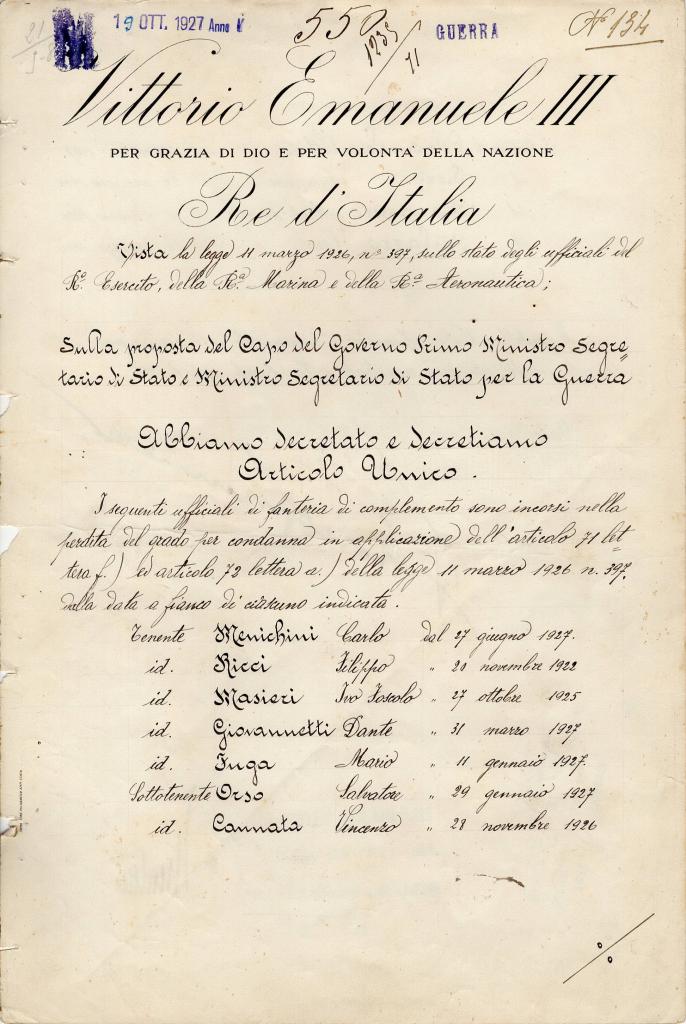 19 OTT. 1927 Anno V
550
1233/11
GUERRA
N° 134
Vittorio Emanuele III
PER GRAZIA DI DIO E PER VOLONTA' DELLA NAZIONE
Re d'Italia
Vista la legge 11 marzo 1926, n° 397, sullo stato degli ufficiali del
R.° Esercito, della R.ª Marina e della R.ª Aeronautica;
Sulla proposta del Capo del Governo Primo Ministro Segre=
tario di Stato e Ministro Segretario di Stato per la Guerra
Abbiamo decretato e decretiamo
Articolo Unico.
I seguenti ufficiali di fanteria di complemento sono incorsi nella
perdita del grado per condanna in applicazione dell'articolo 71 let=
tera f.) ed articolo 72 lettera a.) della legge 11 marzo 1926 n. 397.
dalla data a fianco di ciascuno indicata.
Tenente Menichini Carlo dal 27 giugno 1927.
id. Ricci Filippo " 20 novembre 1922
id. Masieri Ivo Foscolo " 27 ottobre 1925
id. Giovannetti Dante " 31 marzo 1927
id. Fuga Mario " 11 gennaio 1927.
Sottotenente Orso Salvatore " 29 gennaio 1927
id. Cannata Vincenzo " 28 novembre 1926
./.